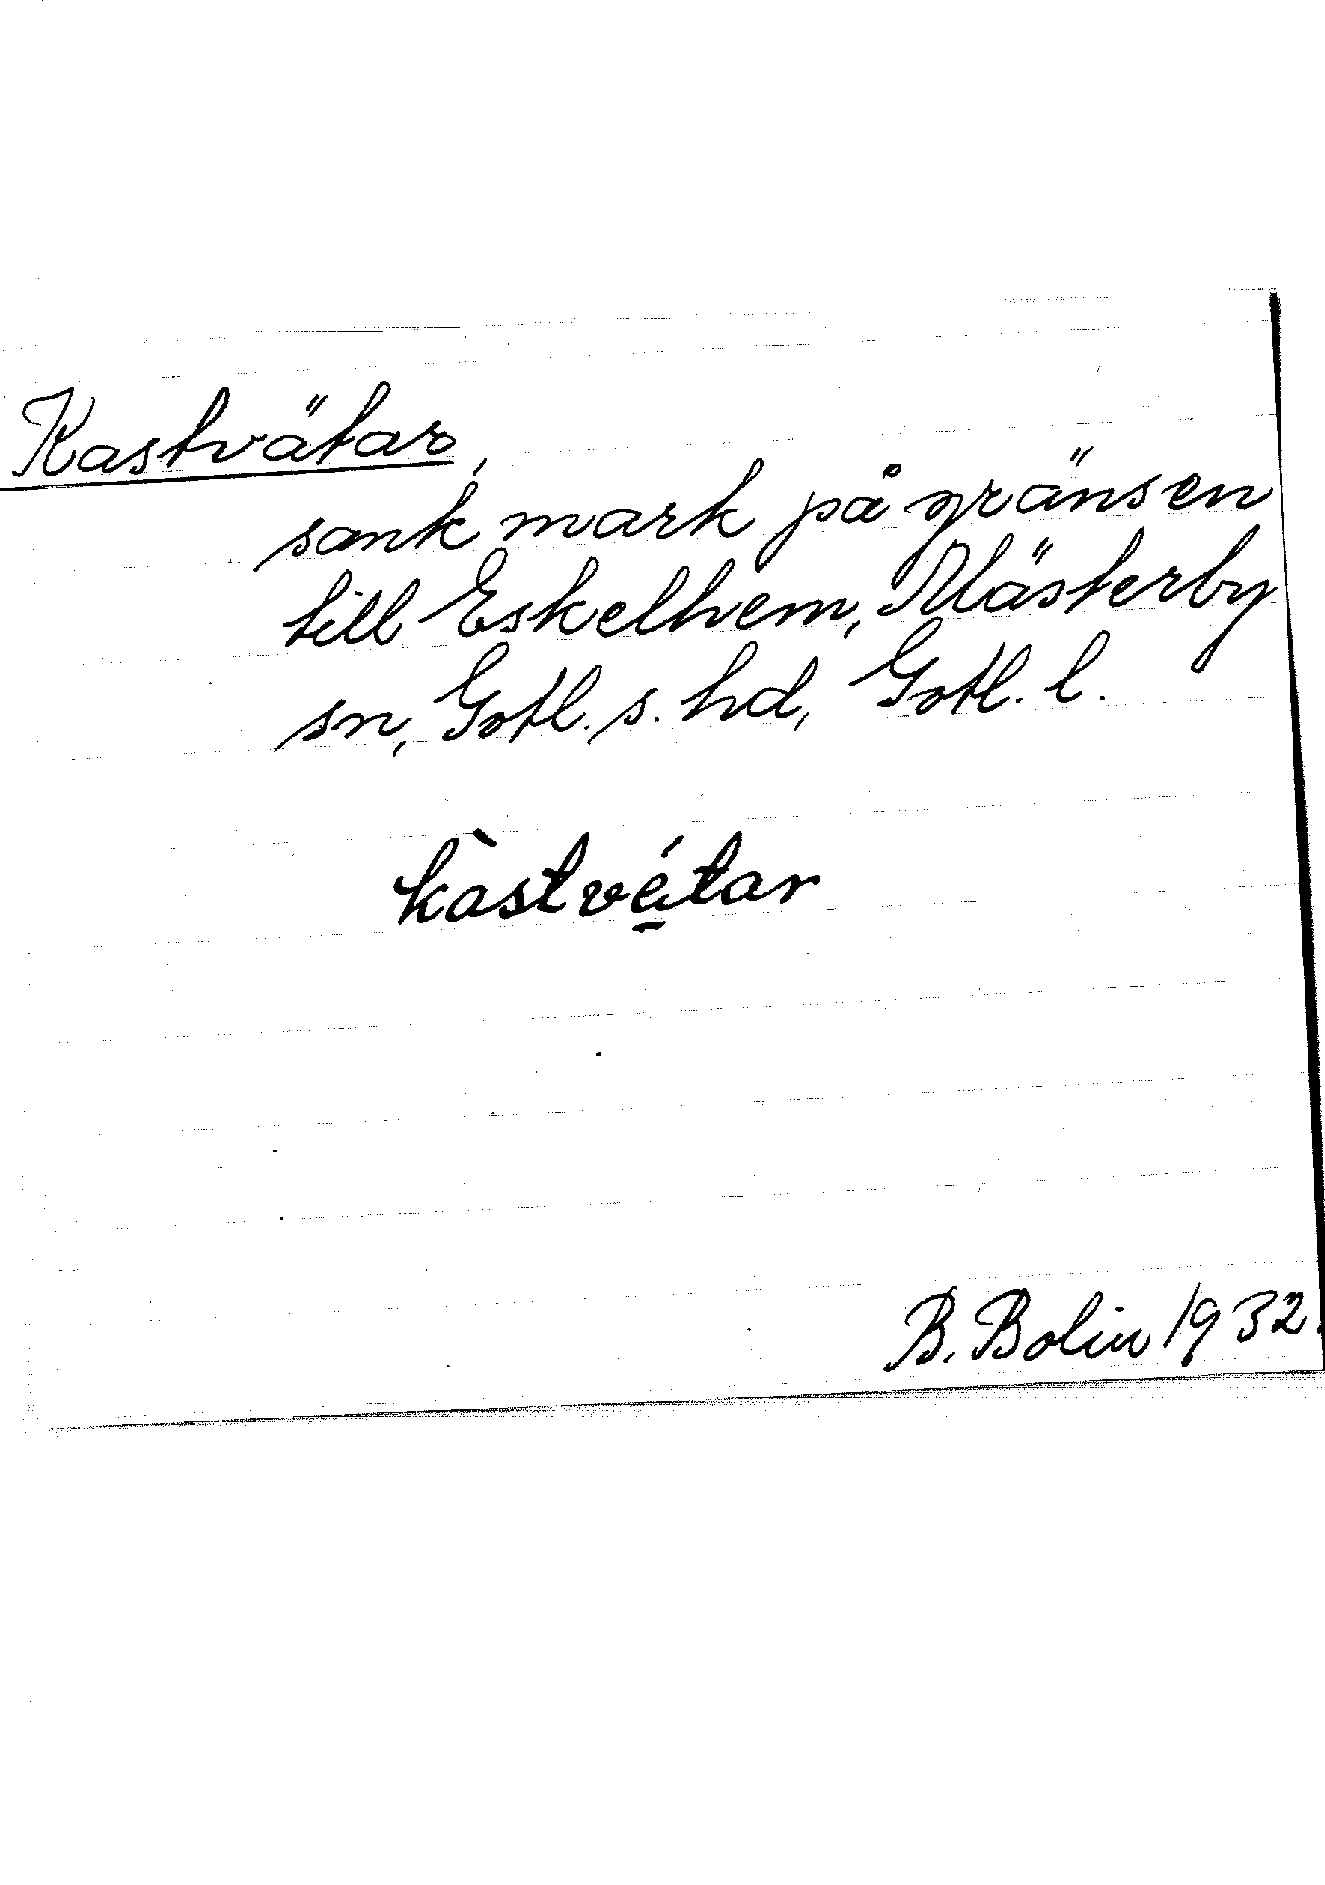 Kastvätar,
sank mark på gränsen
till Eskelhem, Mästerby
sn, Gotl. s. hd, Gotl. l.
kàstvé̱tar
B. Bolin 1932.